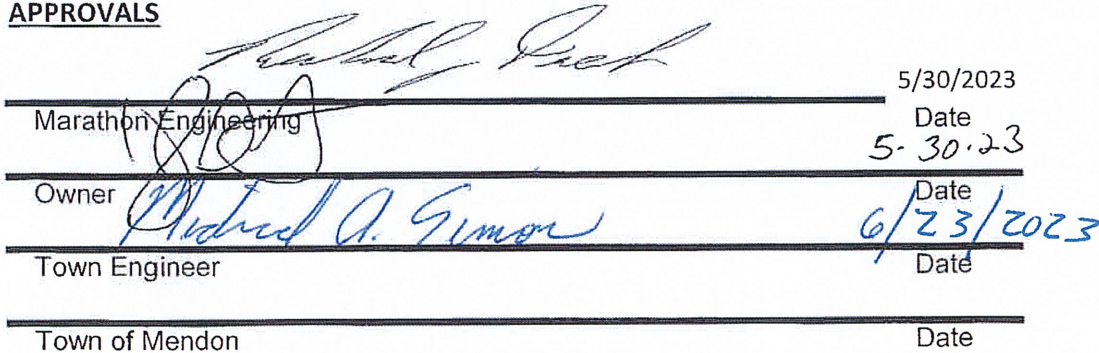 APPROVALS
5/30/2023
Marathon Engineering Date
5-30-23
Owner Date
Michael A. Simon 6/23/2023
Town Engineer Date
Town of Mendon Date